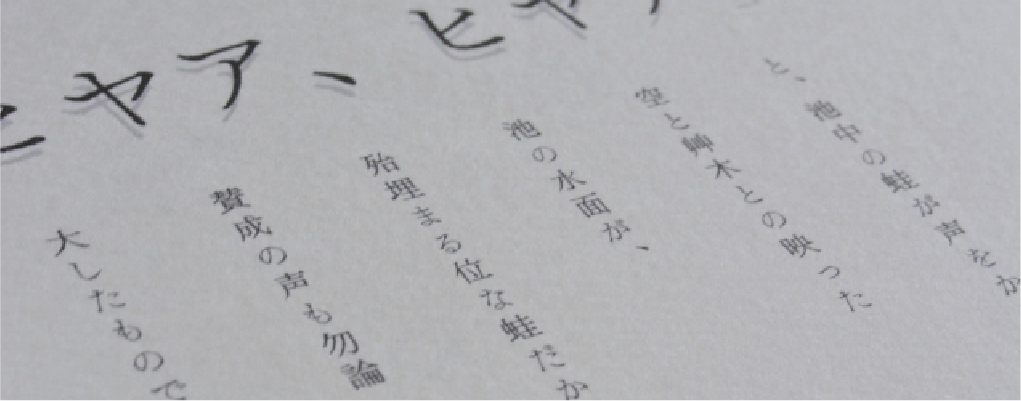 と、池中の蛙が声をか
空と艸木との映った
池の水面が、
殆埋まる位な蛙だか
賛成の声も勿論
大したもので
ヒヤア、ヒヤ